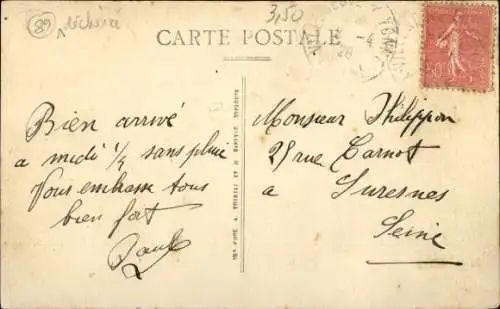 89 
3,50
CARTE POSTALE
Bien arrivé
a midi 1/4 sans pluie
Vous embrasse tous
bien fort
Paul
Monsieur Philippon
25 rue Carnot
a Suresnes
Seine